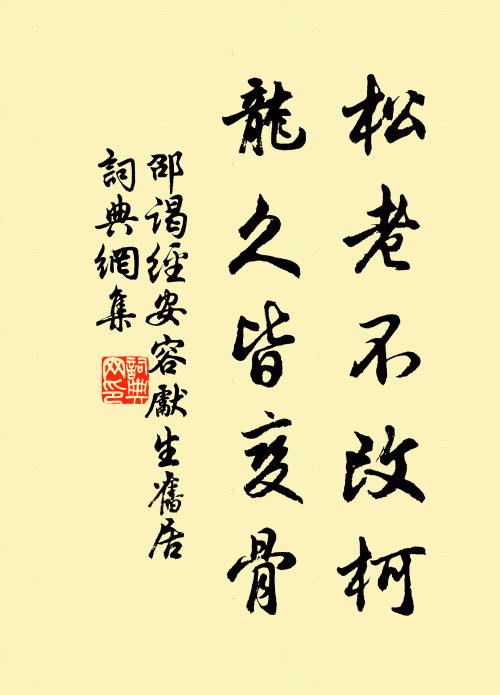 松老不改柯
龍久皆变骨
邵谒經安容獻生舊居
詞典網集
詞典網印